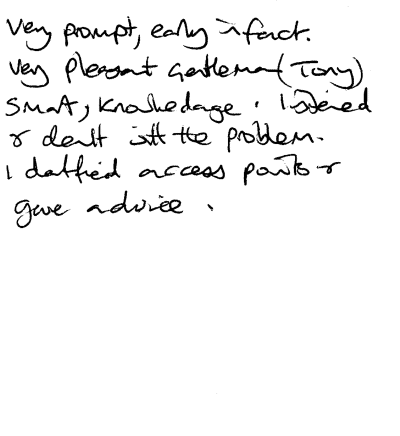 Very prompt, early in fact.
Very Pleasant Gentleman (Tony)
Smart, Knowledage. Listened
& dealt with the problem.
access points &
gave advice.